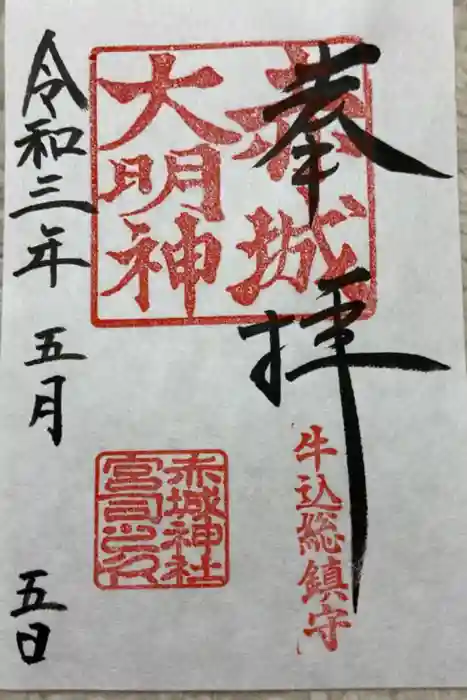 奉拝
赤城
大明神
牛込総鎮守
赤城神社
宮司之印
令和三年 五月 五日